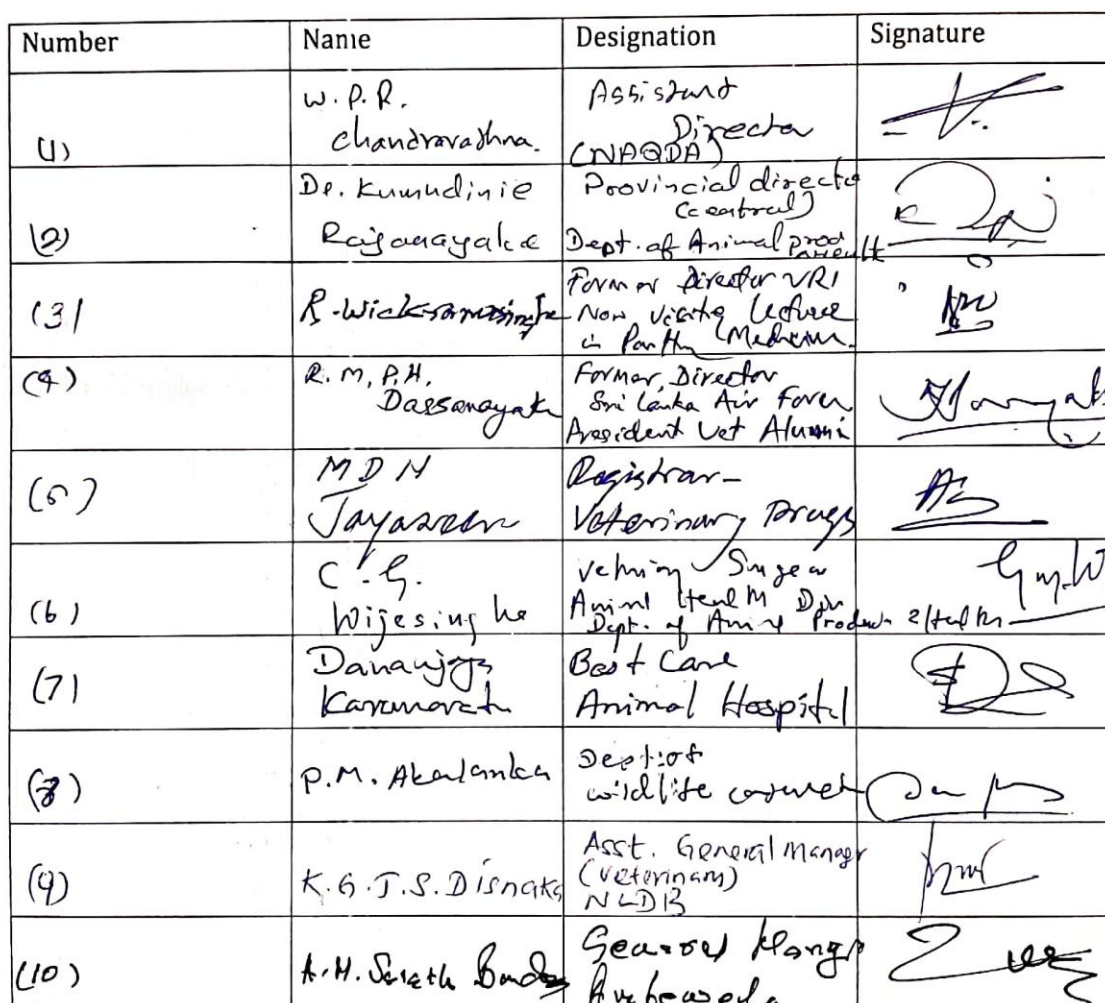 Number Name Designation Signature
(1) W.P.R. Chandrarathna. Assistant Director (NAQDA)
(2) Dr. Kumudinie Rajanayake Provincial director (central) Dept. of Animal prod
(3) R. Wickramasinghe Former Director VRI Now visiting lecturer in Medicine
(4) R.M.P.H. Dassanayake Former, Director Sri Lanka Air Force President Vet Alumni
(5) MDN Registrar- Veterinary Drugs
(6) C.G. Wijesinghe Animal Health Div Dept. of Animal
(7) Dananjaya Karunarath Best Care Animal Hospital
(8) P.M. Akalanka Dept. of wildlife
(9) K.G.J.S. Disnaka Asst. General Manager (veterinary) NLDB
(10) A.H. Sarath Banda